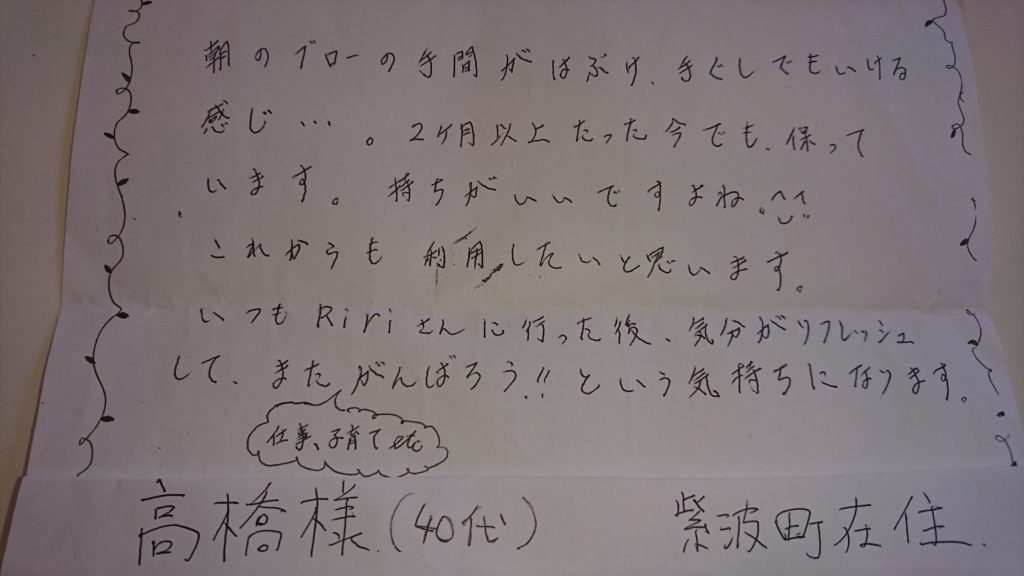 朝のブローの手間がはぶけ、手ぐしでもいける
感じ…。2ヶ月以上たった今でも、保って
います。持ちがいいですよね。^^
これからも利用したいと思います。
いつもRiriさんに行った後、気分がリフレッシュ
して、またがんばろう!!という気持ちになります。
仕事、子育てetc
高橋様(40代) 紫波町在住.